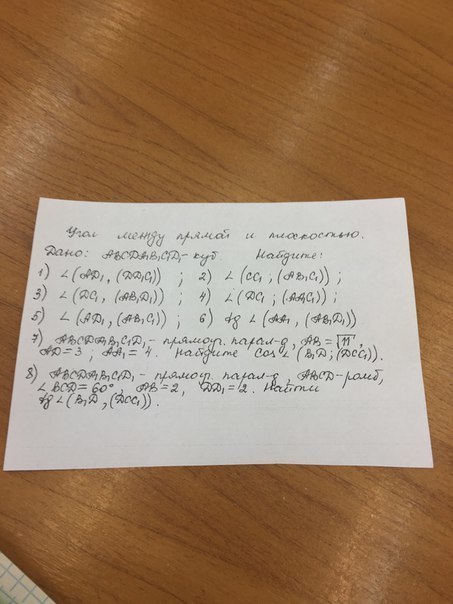 Угол между прямой и плоскостью.
Дано: ABCDA₁B₁C₁D₁ - куб. Найдите:
1) ∠(AD₁, (DD₁C₁)) ; 2) ∠(CC₁ ; (AB₁C₁)) ;
3) ∠(DC₁, (AB₁D₁)) ; 4) ∠(DC₁ ; (AA₁C₁)) ;
5) ∠(AD₁, (AB₁C₁)) ; 6) tg ∠(AA₁ , (AB₁D₁))
7) ABCDA₁B₁C₁D₁ - прямоуг. парал-д, AB = √11,
AD = 3 ; AA₁ = 4. Найдите cos∠(B₁D; (DCC₁)).
8) ABCDA₁B₁C₁D₁ - прямоуг. парал-д, ABCD - ромб,
∠BCD = 60°, AB = 2, DD₁ = 2. Найти
tg ∠(B₁D, (DCC₁)).